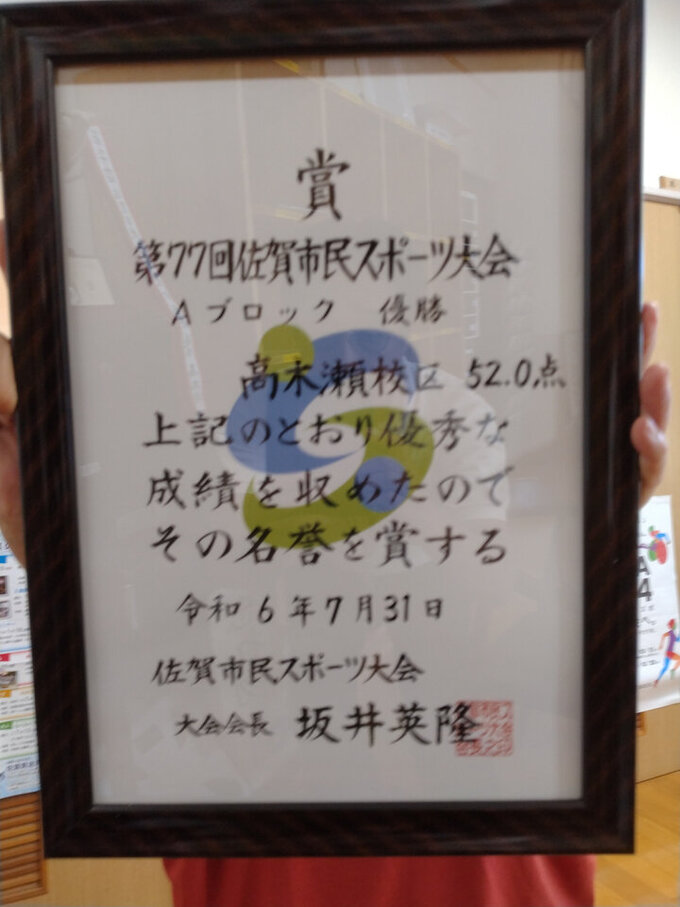 賞
第77回佐賀市民スポーツ大会
Aブロック 優勝
高木瀬校区 52.0点
上記のとおり優秀な
成績を収めたので
その名誉を賞する
令和6年7月31日
佐賀市民スポーツ大会
大会会長 坂井英隆